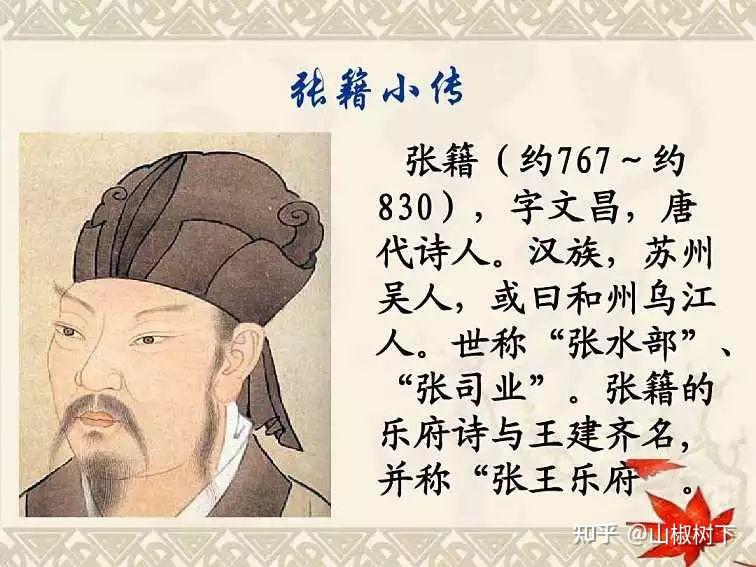 张籍小传
张籍（约767～约
830），字文昌，唐
代诗人。汉族，苏州
吴人，或曰和州乌江
人。世称“张水部”、
“张司业”。张籍的
乐府诗与王建齐名，
并称“张王乐府 。
知乎 @山椒树下